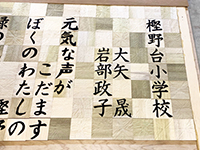 樫野台小学校
大矢 晟
岩部政子
元気な声が
こだます
ぼくのわたしの
樫野